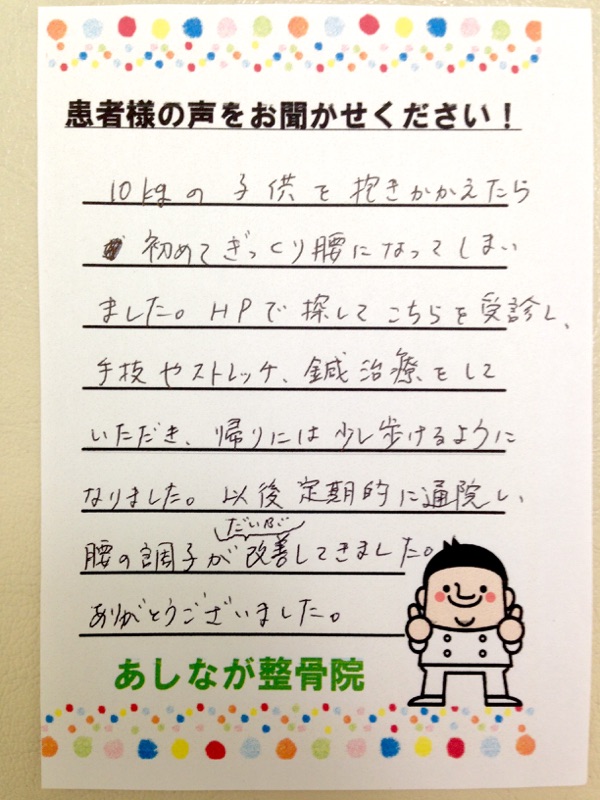 患者様の声をお聞かせください！
10kgの子供を抱きかかえたら
初めてぎっくり腰になってしまい
ました。HPで探してこちらを受診し、
手技やストレッチ、鍼治療をして
いただき、帰りには少し歩けるように
なりました。以後定期的に通院し、
だいぶ
腰の調子が改善してきました。
ありがとうございました。
あしなが整骨院